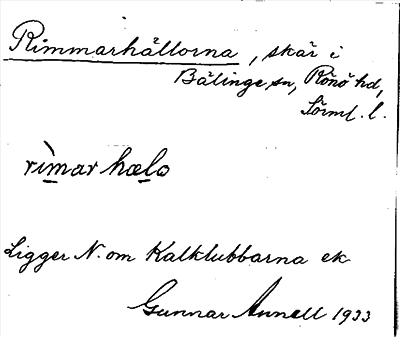 Rimmarhällorna, skär i
Bälinge sn, Rönö hd,
Sörml. l.
rìmar hælo
Ligger N. om Kalklubbarna ek
Gunnar Annell 1933